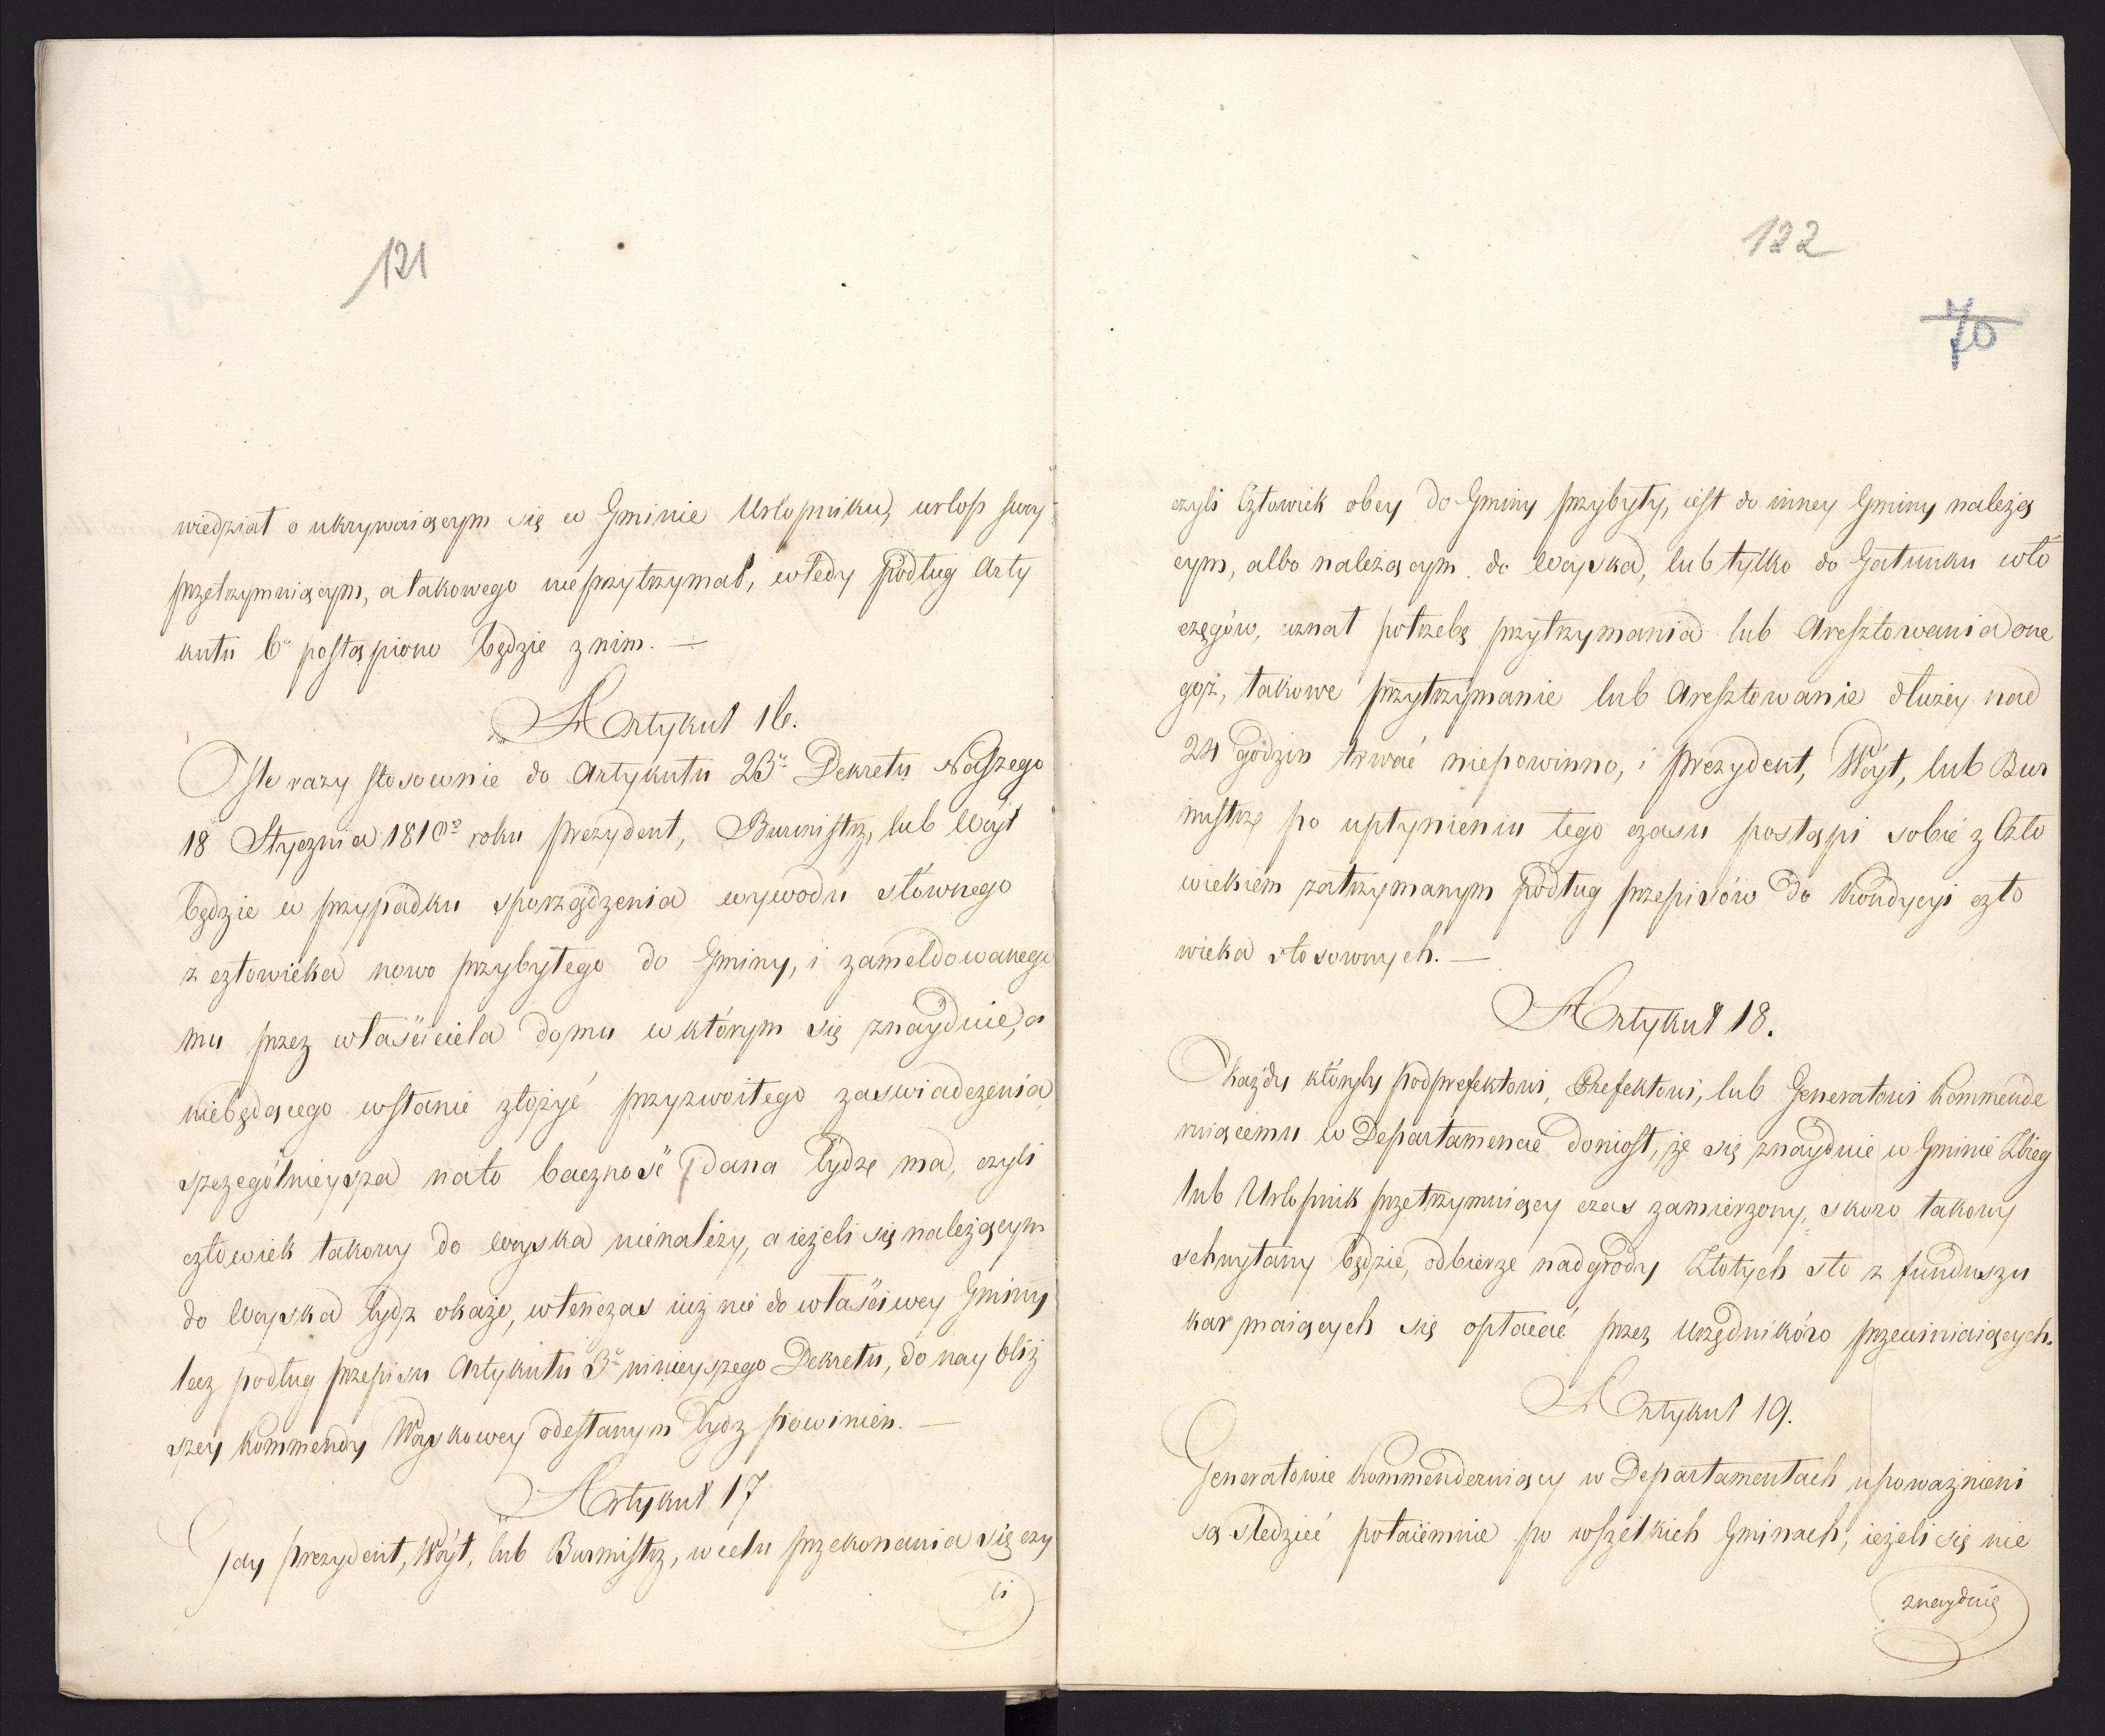 121
wiedział o ukrywaiącym się w Gminie Urlopniku, urlop swoy
przetrzymuiącym, a takowego nieprzytrzymał, wtedy podług Arty
kułu 6º postąpiono będzie z nim. —
Artykuł 16.
Ile razy stosownie do Artykułu 23º Dekretu Naszego
18 Stycznia 1810go roku prezydent, Burmistrz, lub Wóyt
będzie w przypadku sporządzenia wywodu słownego
z człowieka nowo przybyłego do Gminy, i zameldowanego
mu przez właściciela domu w którym się znayduie, a
niebędącego wstanie złożyć przyzwoitego zaswiadczenia
szczególnieysza nato baczność dana bydź ma, czyli
człowiek takowy do woyska nienależy, a ieżeli się należącym
do Woyska bydz okaże, wtenczas iuż nie do właściwey Gminy
lecz podług przepisu Artykułu 3º ninieyszego Dekretu, do nay bliż
szey kommendy Woyskowey odesłanym bydz powinien. —
Artykuł 17
Gdy prezydent, Wóyt, lub Burmistrz, w celu przekonania się czy
li
122
70
czyli Człowiek obcy do Gminy przybyły, iest do inney Gminy należą
cym, albo należącym do Woyska, lub tylko do Gatunku włó
częgów, uznał potrzebę przytrzymania lub Aresztowania one
goż, takowe przytrzymanie lub Aresztowanie dłużey nad
24 godzin trwać niepowinno, i prezydent, Wóyt, lub Bur
mistrz po upłynieniu tego czasu postąpi sobie z Czło
wiekiem zatrzymanym podług przepisów do kondycyi czło
wieka stosownych. —
Artykuł 18.
Każdy któryby podprefektowi, Prefektowi, lub Generałowi kommende
ruiącemu w Departamencie doniosł, że się znayduie w Gminie Zbieg
lub Urlopnik przetrzymuiący czas zamierzony, skoro takowy
schwytany będzie, odbierze nadgrody Złotych sto z funduszu
kar maiących się opłacać przez Urzędników przewiniaiących.
Artykuł 19.
Generałowie kommenderuiący w Departamentach upoważnieni
są sledzić potaiemnie po wszelkich Gminach, ieżeli się nie
znayduię